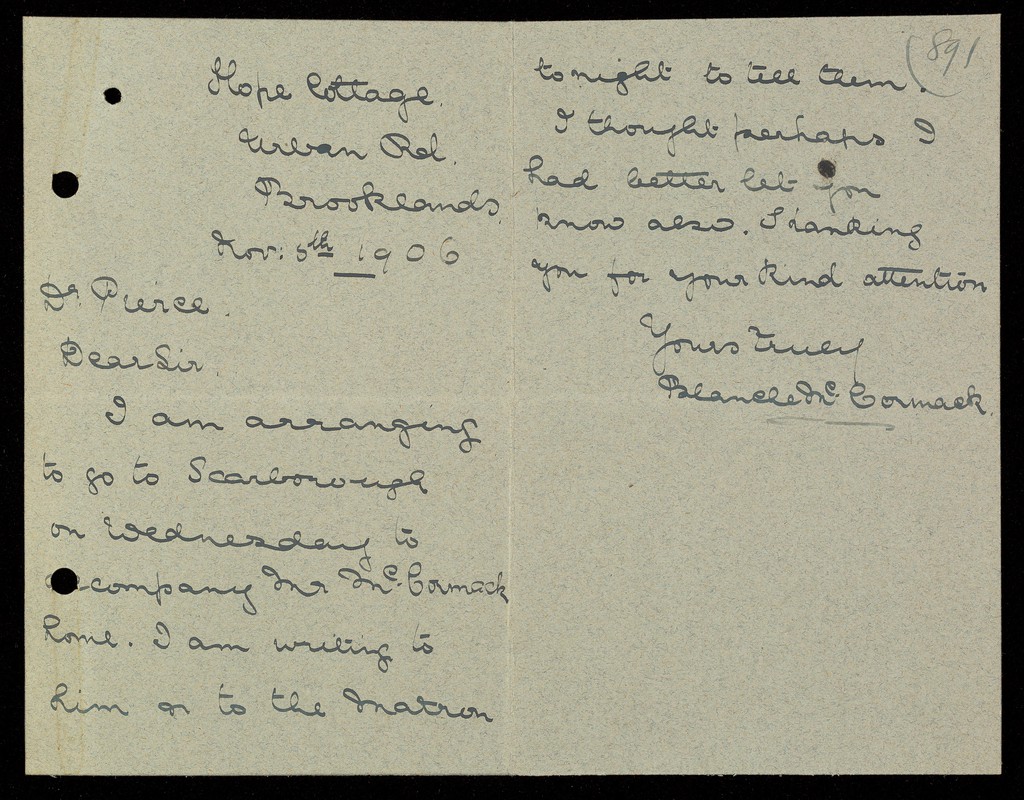 Hope Cottage.
Urban Rd.
Brooklands.
Nov: 5th 1906
Dr. Pierce.
Dear Sir
I am arranging
to go to Scarborough
on Wednesday to
accompany Mr McCormack
home. I am writing to
him or to the Matron
(891
tonight to tell them.
I thought perhaps I
had better let you
know also. Thanking
you for your kind attention
Yours truly
Blanche Mc. Cormack.